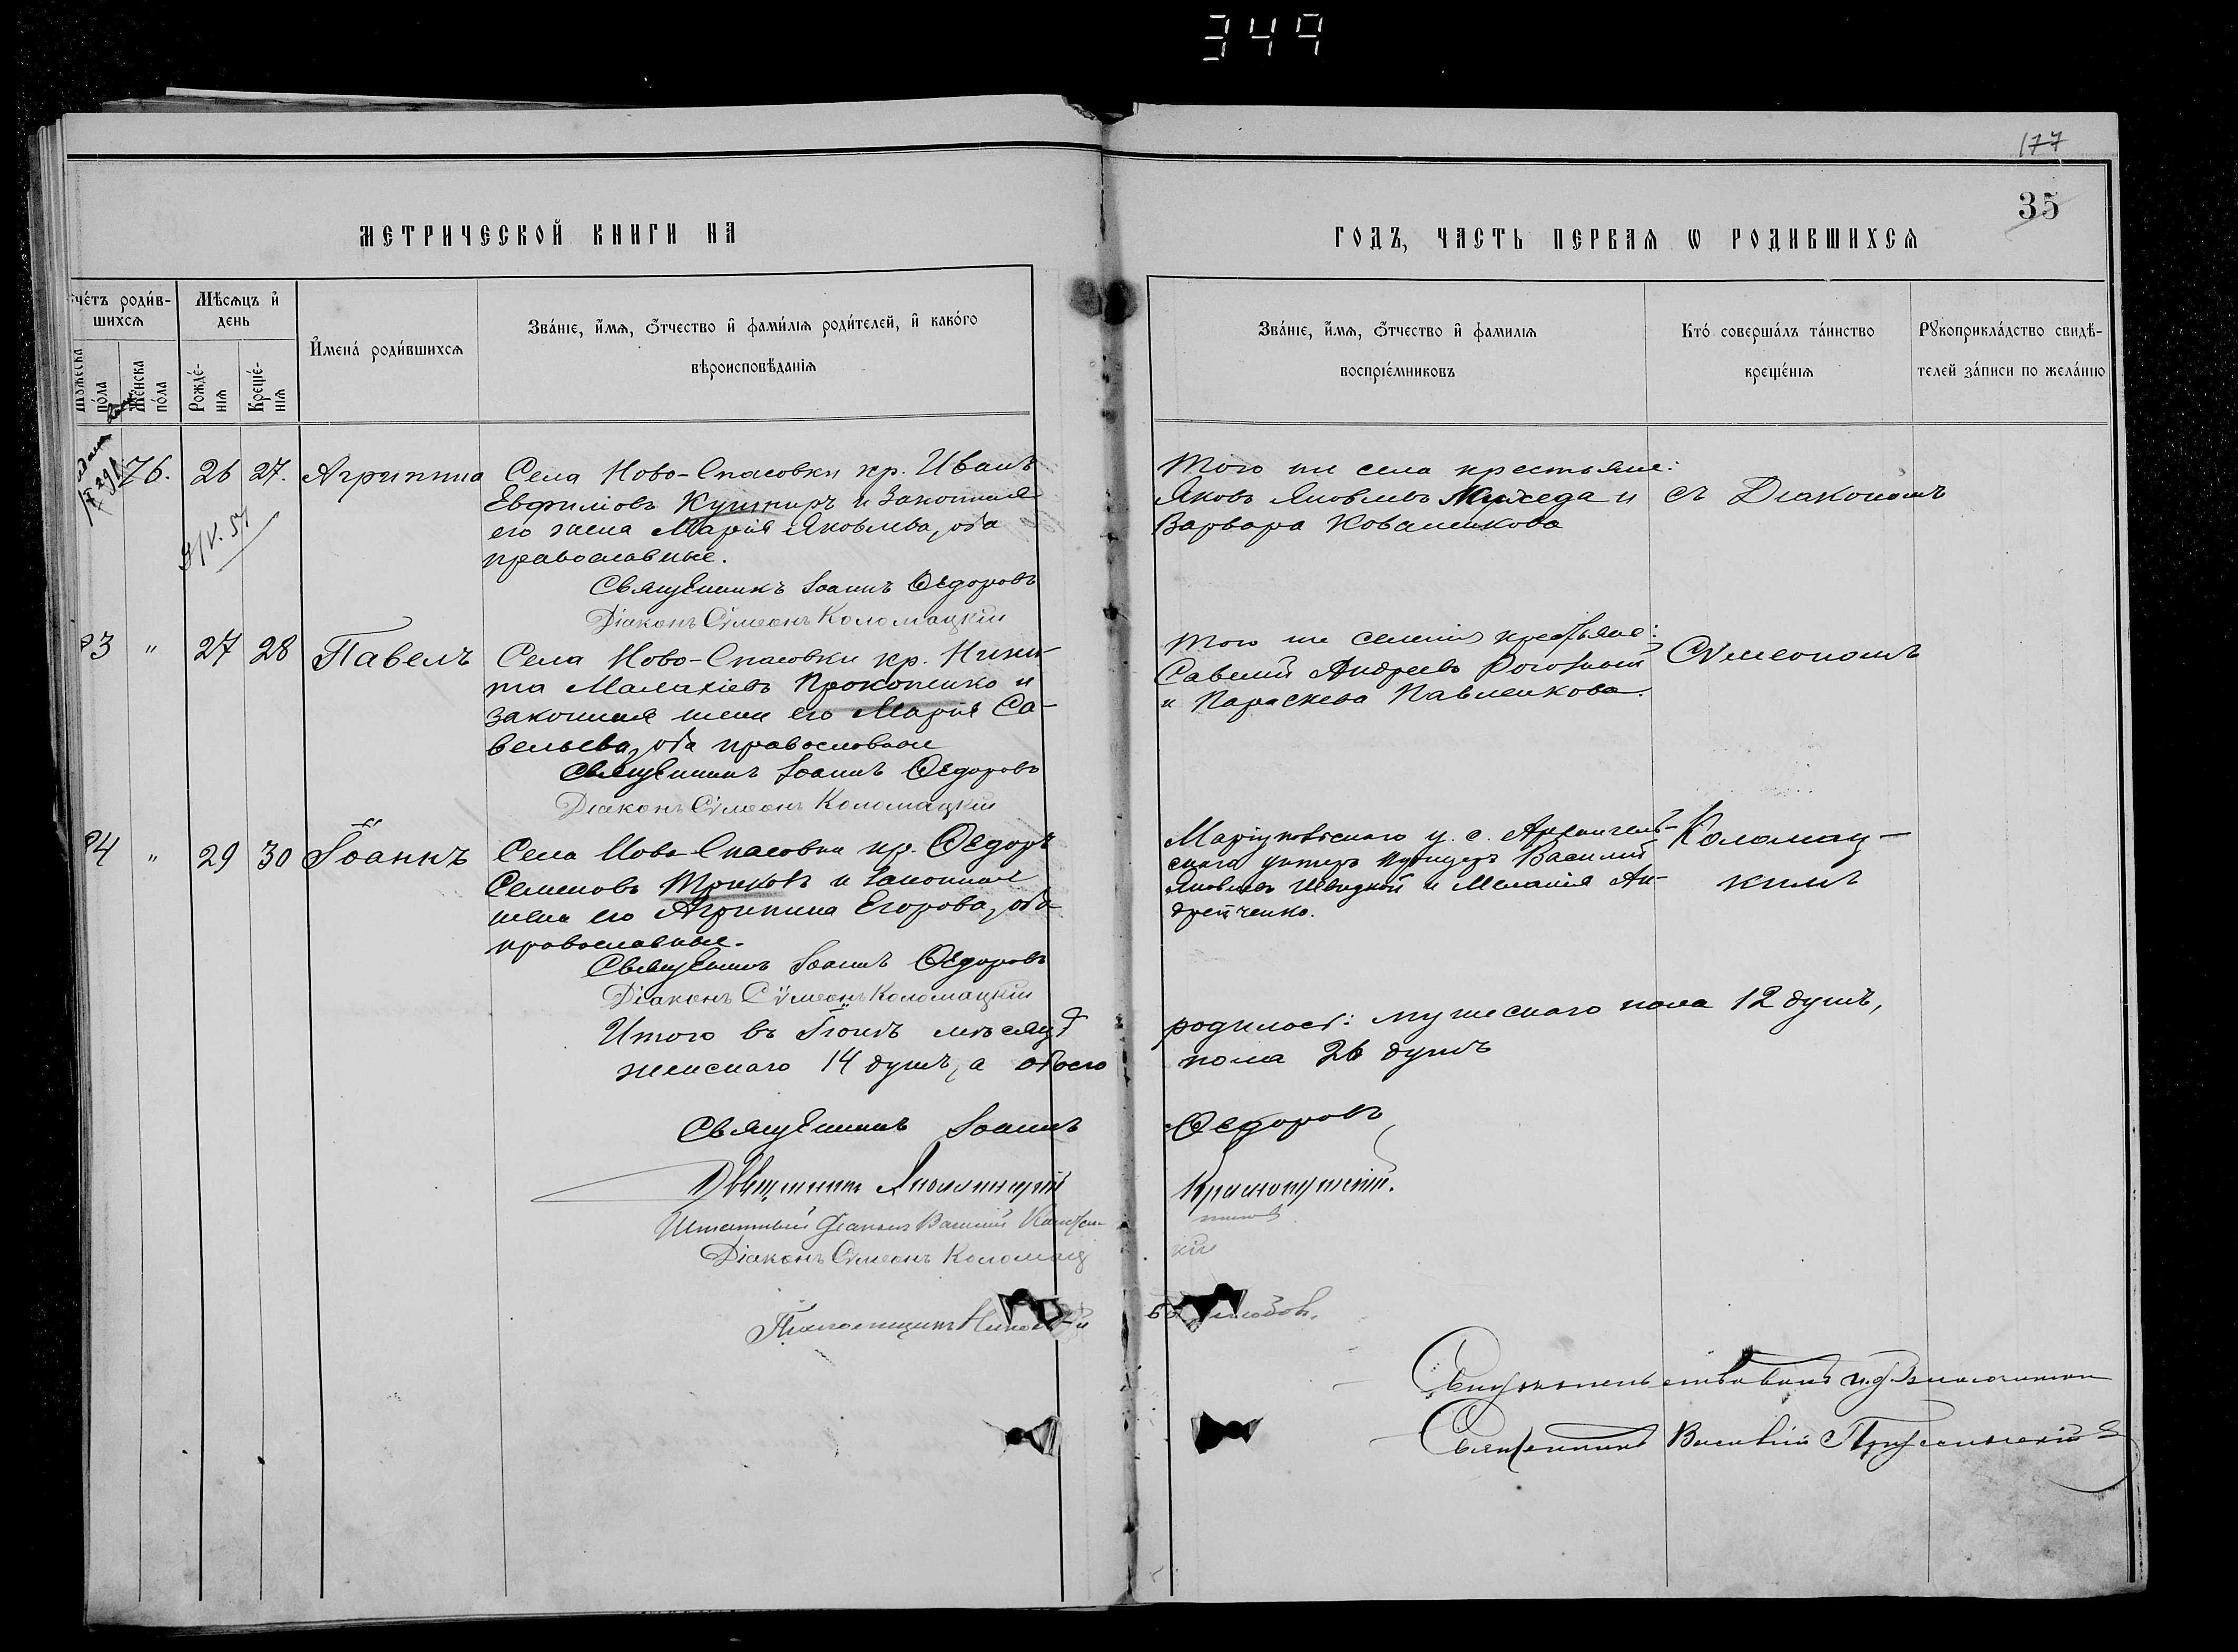 349
177
35
МЕТРИЧЕСКОЙ КНИГИ НА
ГОДЪ, ЧАСТЬ ПЕРВАЯ Ѡ РОДИВШИХСЯ
счéтъ роди́в-
шихсѧ
Мѣсѧцъ и҆
день
И҆мена́ роди́вшихсѧ
Зва́нїе, и҆́мѧ, ѻ҆́тчество и҆ фами́лїѧ роди́телей, и҆ како́го
вѣроисповѣ́данїѧ
Мꙋ́жеска
по́ла
Же́нска
по́ла
Рожде́-
нїѧ
Креще́-
нїѧ
Зва́нїе, и҆́мѧ, ѻ҆́тчество и҆ фамилїѧ
воспрїе́мниковъ
Кто́ соверша́лъ та́инство
креще́нїѧ
Рꙋкоприкла́дство свидѣ́-
телей за́писи по жела́нїю
76. 26 27. Агрипина
Села Ново-Спасовки кр. Иванъ
Евфиміовъ Кушниръ и законная
его жена Марія Яковлева, оба
православные.
Священникъ Іоаннъ Ѳедоровъ
Діаконъ Сѵмеонъ Коломацкій
Того же села крестьяне:
Яковъ Яковлевъ и
Варвара Коваленкова
съ Діакономъ
3/V. 57
83 " 27 28 Павелъ
Села Ново-Спасовки кр. Ники-
та Малахіевъ Прокопенко и
законная жена его Марія Са-
вельева, оба православные
Священникъ Іоаннъ Ѳедоровъ
Діаконъ Сѵмеонъ Коломацкій
Того же селенія крестьяне:
Савелий Андреевъ
и Параскева Павленкова.
Сѵмеономъ
84 " 29 30 Іоаннъ
Села Ново-Спасовки кр. Ѳедоръ
Семеновъ и законная
жена его Агрипина Егорова, оба
православные.
Священникъ Іоаннъ Ѳедоровъ
Діаконъ Сѵмеонъ Коломацкій
Маріупольскаго у. с. Архангель-
скаго унтеръ Василий
Яковлевъ Швидкой и Меланія Ан-
дрейченко.
Коломац-
кимъ
Итого въ Іюнѣ мѣсяцѣ родилось: мужескаго пола 12 душъ,
женскаго 14 душъ, а обоего пола 26 душъ
Священникъ Іоаннъ Ѳедоровъ
Священникъ
Штатный діаконъ Василий
Діаконъ Сѵмеонъ Коломацкій
Псаломщикъ Николай
Свидѣтельствовалъ и.д. благочиннаго
Священникъ Василій